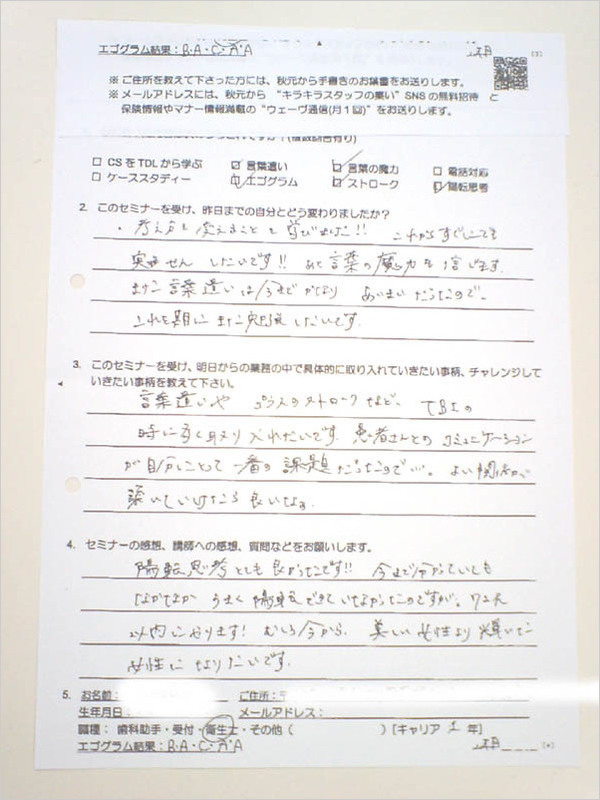 エゴグラム結果：B・A・C・A・A
※ご住所を教えて下さった方には、秋元から手書きのお葉書をお送りします。
※メールアドレスには、秋元から “キラキラスタッフの集い” SNSの無料招待 と
保険情報やマナー情報満載の“ウェーヴ通信(月１回)” をお送りします。
□ CSをTDLから学ぶ ☑ 言葉遣い ☑ 言葉の魔力 □ 電話対応
□ ケーススタディー ☑ エゴグラム ☑ ストローク ☑ 陽転思考
2. このセミナーを受け、昨日までの自分とどう変わりましたか？
・考え方を変えることを学びました!! これからすぐにでも
実せんしたいです!! あと言葉の魔力を信じます。
また言葉遣いは今までかなりあいまいだったので。
これを期にまた勉強したいです。
3. このセミナーを受け、明日からの業務の中で具体的に取り入れていきたい事柄、チャレンジして
いきたい事柄を教えて下さい。
言葉遣いや プラスのストロークなど、TBIの
時に多く取り入れたいです。患者さんとのコミュニケーション
が自分にとって一番の課題だったので…。よい関係が
築いていけたら良いなぁ
4. セミナーの感想、講師への感想、質問などをお願いします。
陽転思考とても良かったです!! 今まで分かっていても
なかなかうまく陽転できていなかったのですが。72h
以内にやります! むしろ今から。美しい女性より輝いた
女性になりたいです。
5. お名前： ご住所：〒
生年月日： メールアドレス：
職種： 歯科助手・受付・衛生士・その他（ ）[キャリア 1 年]
エゴグラム結果：B・A・C・A・A